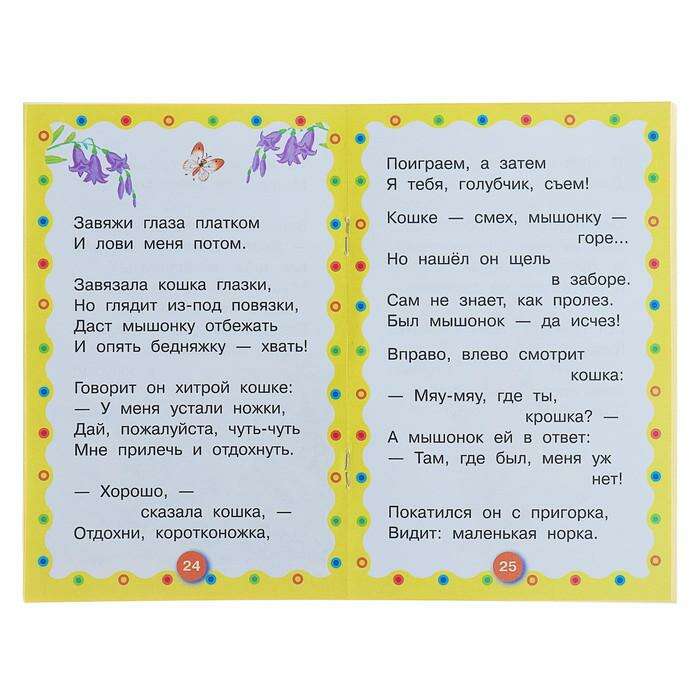 Завяжи глаза платком
И лови меня потом.
Завязала кошка глазки,
Но глядит из-под повязки,
Даст мышонку отбежать
И опять бедняжку — хвать!
Говорит он хитрой кошке:
— У меня устали ножки,
Дай, пожалуйста, чуть-чуть
Мне прилечь и отдохнуть.
— Хорошо, —
сказала кошка, —
Отдохни, коротконожка,
24
Поиграем, а затем
Я тебя, голубчик, съем!
Кошке — смех, мышонку —
горе...
Но нашёл он щель
в заборе.
Сам не знает, как пролез.
Был мышонок — да исчез!
Вправо, влево смотрит
кошка:
— Мяу-мяу, где ты,
крошка? —
А мышонок ей в ответ:
— Там, где был, меня уж
нет!
Покатился он с пригорка,
Видит: маленькая норка.
25